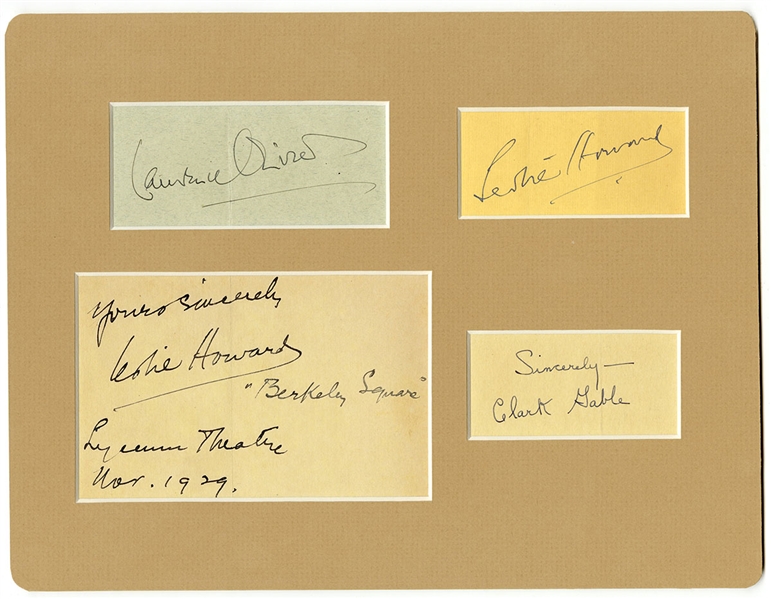 Laurence Olivier
Leslie Howard
Yours sincerely
Leslie Howard
"Berkeley Square"
Lyceum Theatre
Nov. 1929.
Sincerely—
Clark Gable